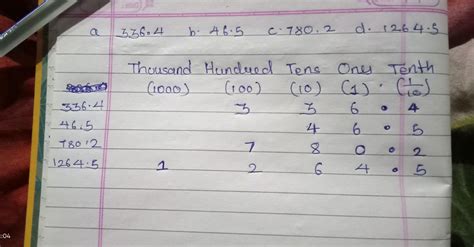 a 336.4 b. 46.5 c. 780.2 d. 1264.5
Thousand Hundred Tens Ones Tenth
(1000) (100) (10) (1) . (1/10)
336.4 3 3 6 . 4
46.5 4 6 . 5
780.2 7 8 0 . 2
1264.5 1 2 6 4 . 5
:04